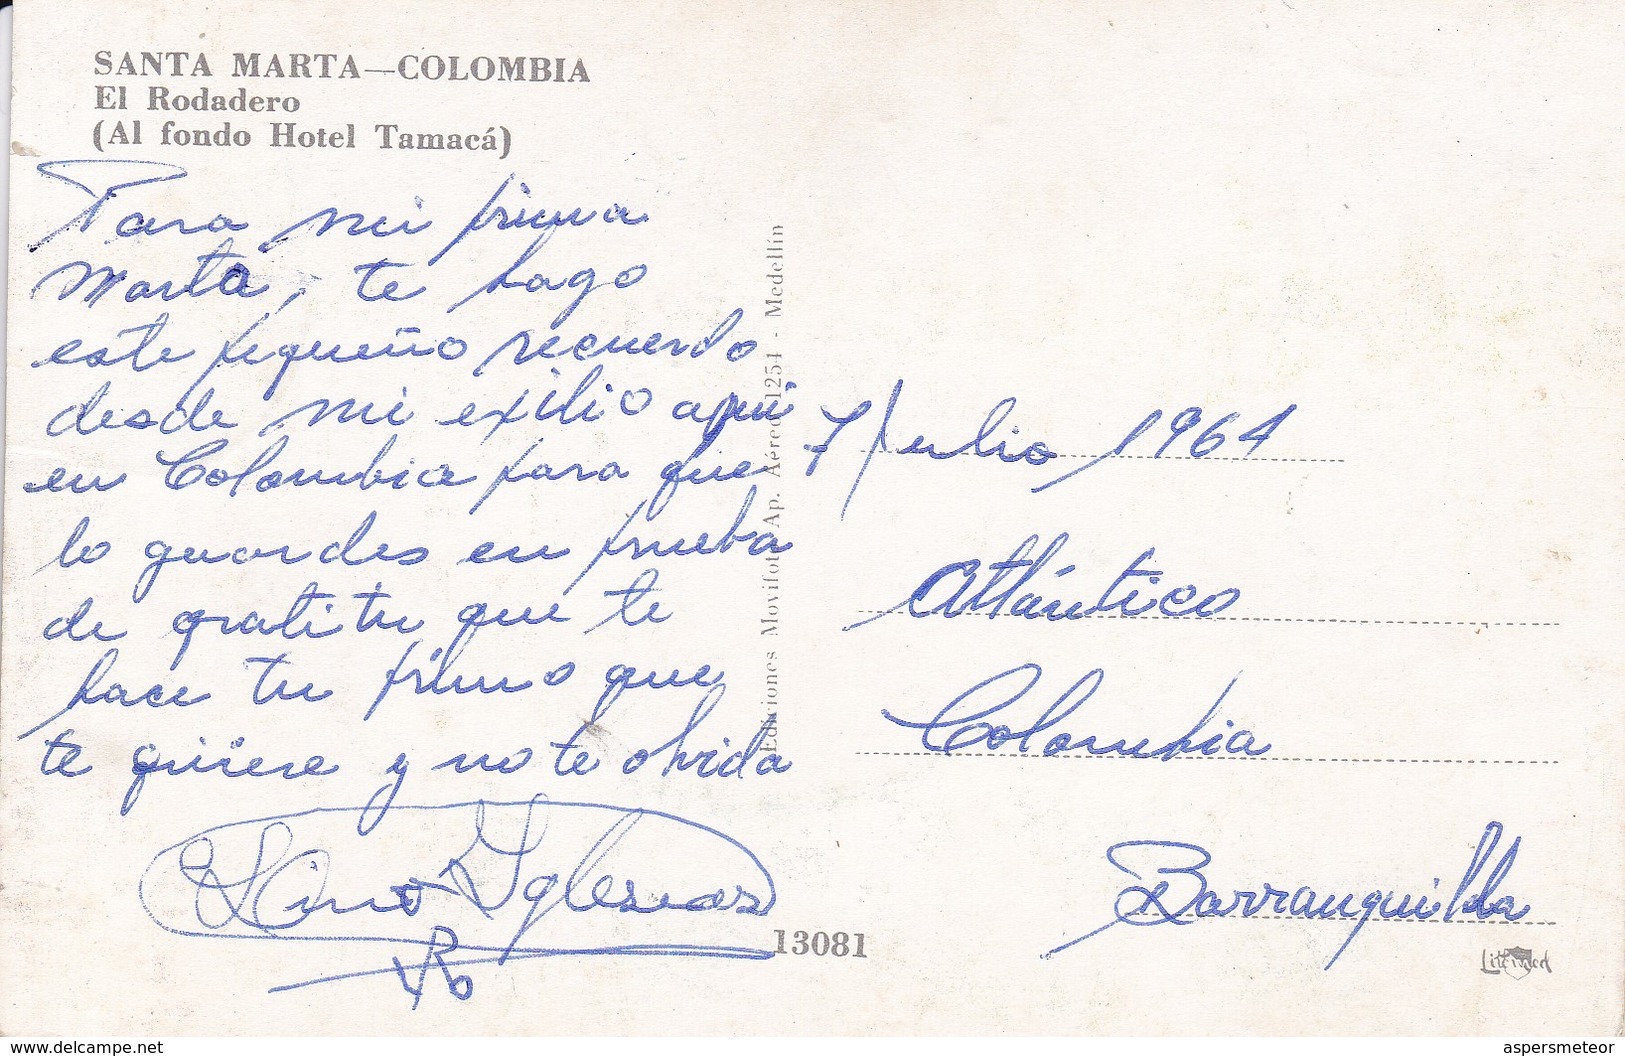 SANTA MARTA—COLOMBIA
El Rodadero
(Al fondo Hotel Tamacá)
Para mi prima
Marta, te hago
este pequeño recuerdo
desde mi exilio aqui
en Colombia para que
lo guardes en prueba
de gratitu que te
hace tu primo que
te quiere y no te olvida
Lino Iglesias
13081
Ediciones Movifoto Ap. Aéreo 1251 - Medellín
7/Julio 1964
Atlántico
Colombia
Barranquilla
www.delcampe.net
aspersmeteor